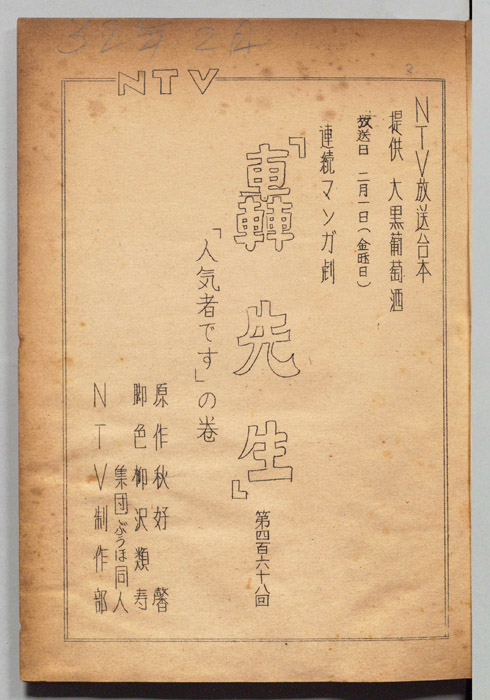 NTV
NTV放送台本
提供 大黒葡萄酒
放送日 二月一日(金曜日)
連続マンガ劇
「轟先生」
第四百六十八回
「人気者です」の巻
原作 秋好 馨
脚色 柳沢類寿
集団ぶうほ同人
NTV制作部